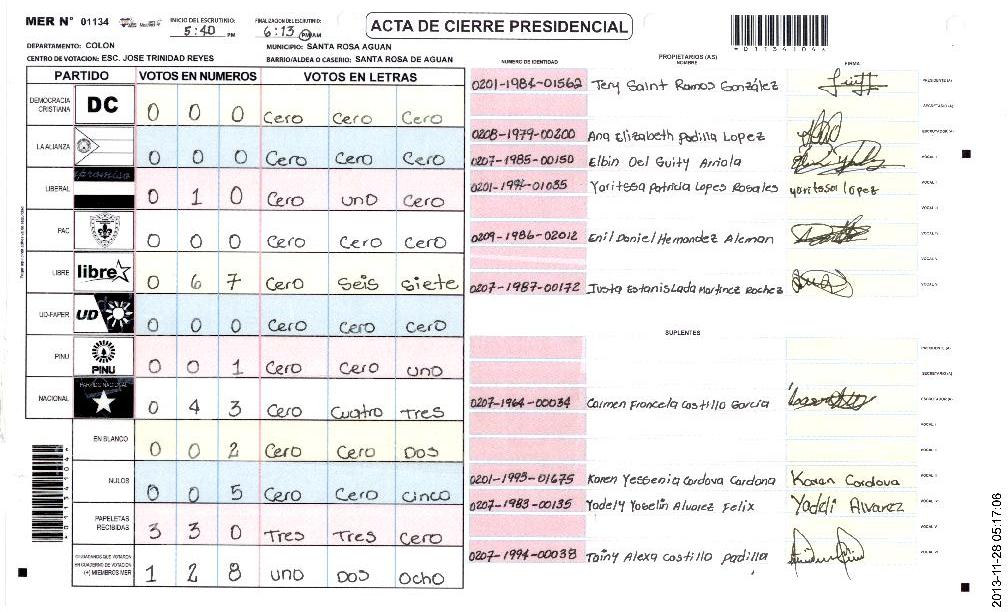 MER Nº 01134
INICIO DEL ESCRUTINIO: 5:40 PM
FINALIZACION DEL ESCRUTINIO: 6:13 PM AM
ACTA DE CIERRE PRESIDENCIAL
DEPARTAMENTO: COLON
MUNICIPIO: SANTA ROSA AGUAN
CENTRO DE VOTACION: ESC. JOSE TRINIDAD REYES
BARRIO/ALDEA O CASERIO: SANTA ROSA DE AGUAN
PARTIDO VOTOS EN NUMEROS VOTOS EN LETRAS
DEMOCRACIA CRISTIANA DC 0 0 0 Cero Cero Cero
LA ALIANZA 0 0 0 Cero Cero Cero
LIBERAL 0 1 0 Cero uno Cero
PAC 0 0 0 Cero Cero Cero
LIBRE libre 0 6 7 Cero Seis Siete
UD-FAPER UD 0 0 0 Cero Cero Cero
PINU PINU 0 0 1 Cero Cero uno
NACIONAL PARTIDO NACIONAL 0 4 3 Cero Cuatro Tres
EN BLANCO 0 0 2 Cero Cero Dos
NULOS 0 0 5 Cero Cero Cinco
PAPELETAS RECIBIDAS 3 3 0 Tres Tres Cero
CIUDADANOS QUE VOTARON EN CUADERNO DE VOTACION (+) MIEMBROS MER 1 2 8 uno Dos Ocho
PROPIETARIOS (AS)
NUMERO DE IDENTIDAD NOMBRE FIRMA
0201-1984-01562 Tery Saint Ramos González PRESIDENTE (A)
SECRETARIO (A)
0208-1979-00200 Ana Elizabeth Padilla Lopez ESCRUTADOR (A)
0207-1985-00150 Elbin Del Guity Arriola VOCAL I
0201-1994-01035 Yaritssa Patricia Lopes Rosales yaritssa lopez VOCAL II
VOCAL III
0209-1986-02012 Enil Daniel Hernandez Aleman VOCAL IV
VOCAL V
0207-1987-00172 Justa Estanislada Martinez Rochez VOCAL VI
SUPLENTES
PRESIDENTE (A)
SECRETARIO (A)
0207-1964-00034 Carmen Francela Castillo Garcia ESCRUTADOR (A)
VOCAL I
VOCAL II
0201-1993-01675 Karen Yessenia Cardova Cardona Karen Cordova
0207-1983-00135 Yadely Yoselin Alvarez Felix Yaddi Alvarez
VOCAL V
0207-1994-00038 Tainy Alexa Castillo Padilla VOCAL VI
2013-11-28 05:17:06